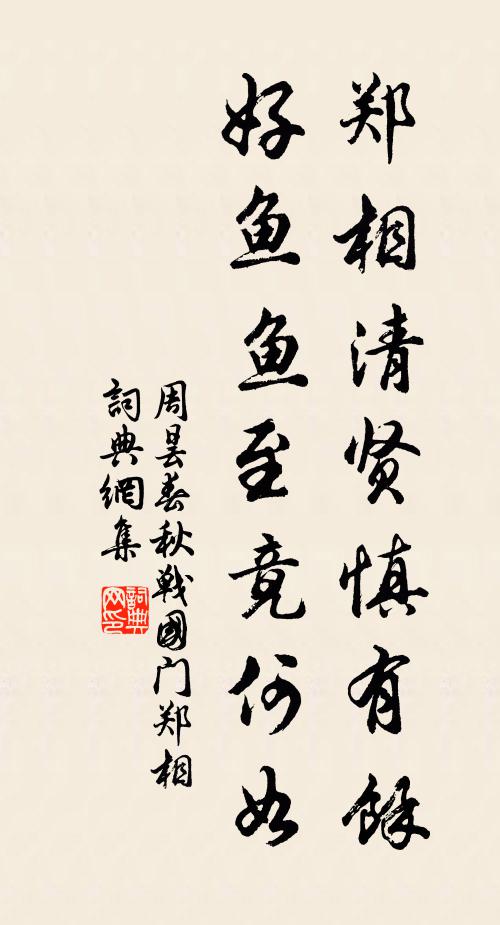 郑相清贤慎有馀
好鱼鱼至竟何如
周昙春秋戰國门郑相
詞典網集
詞典网印